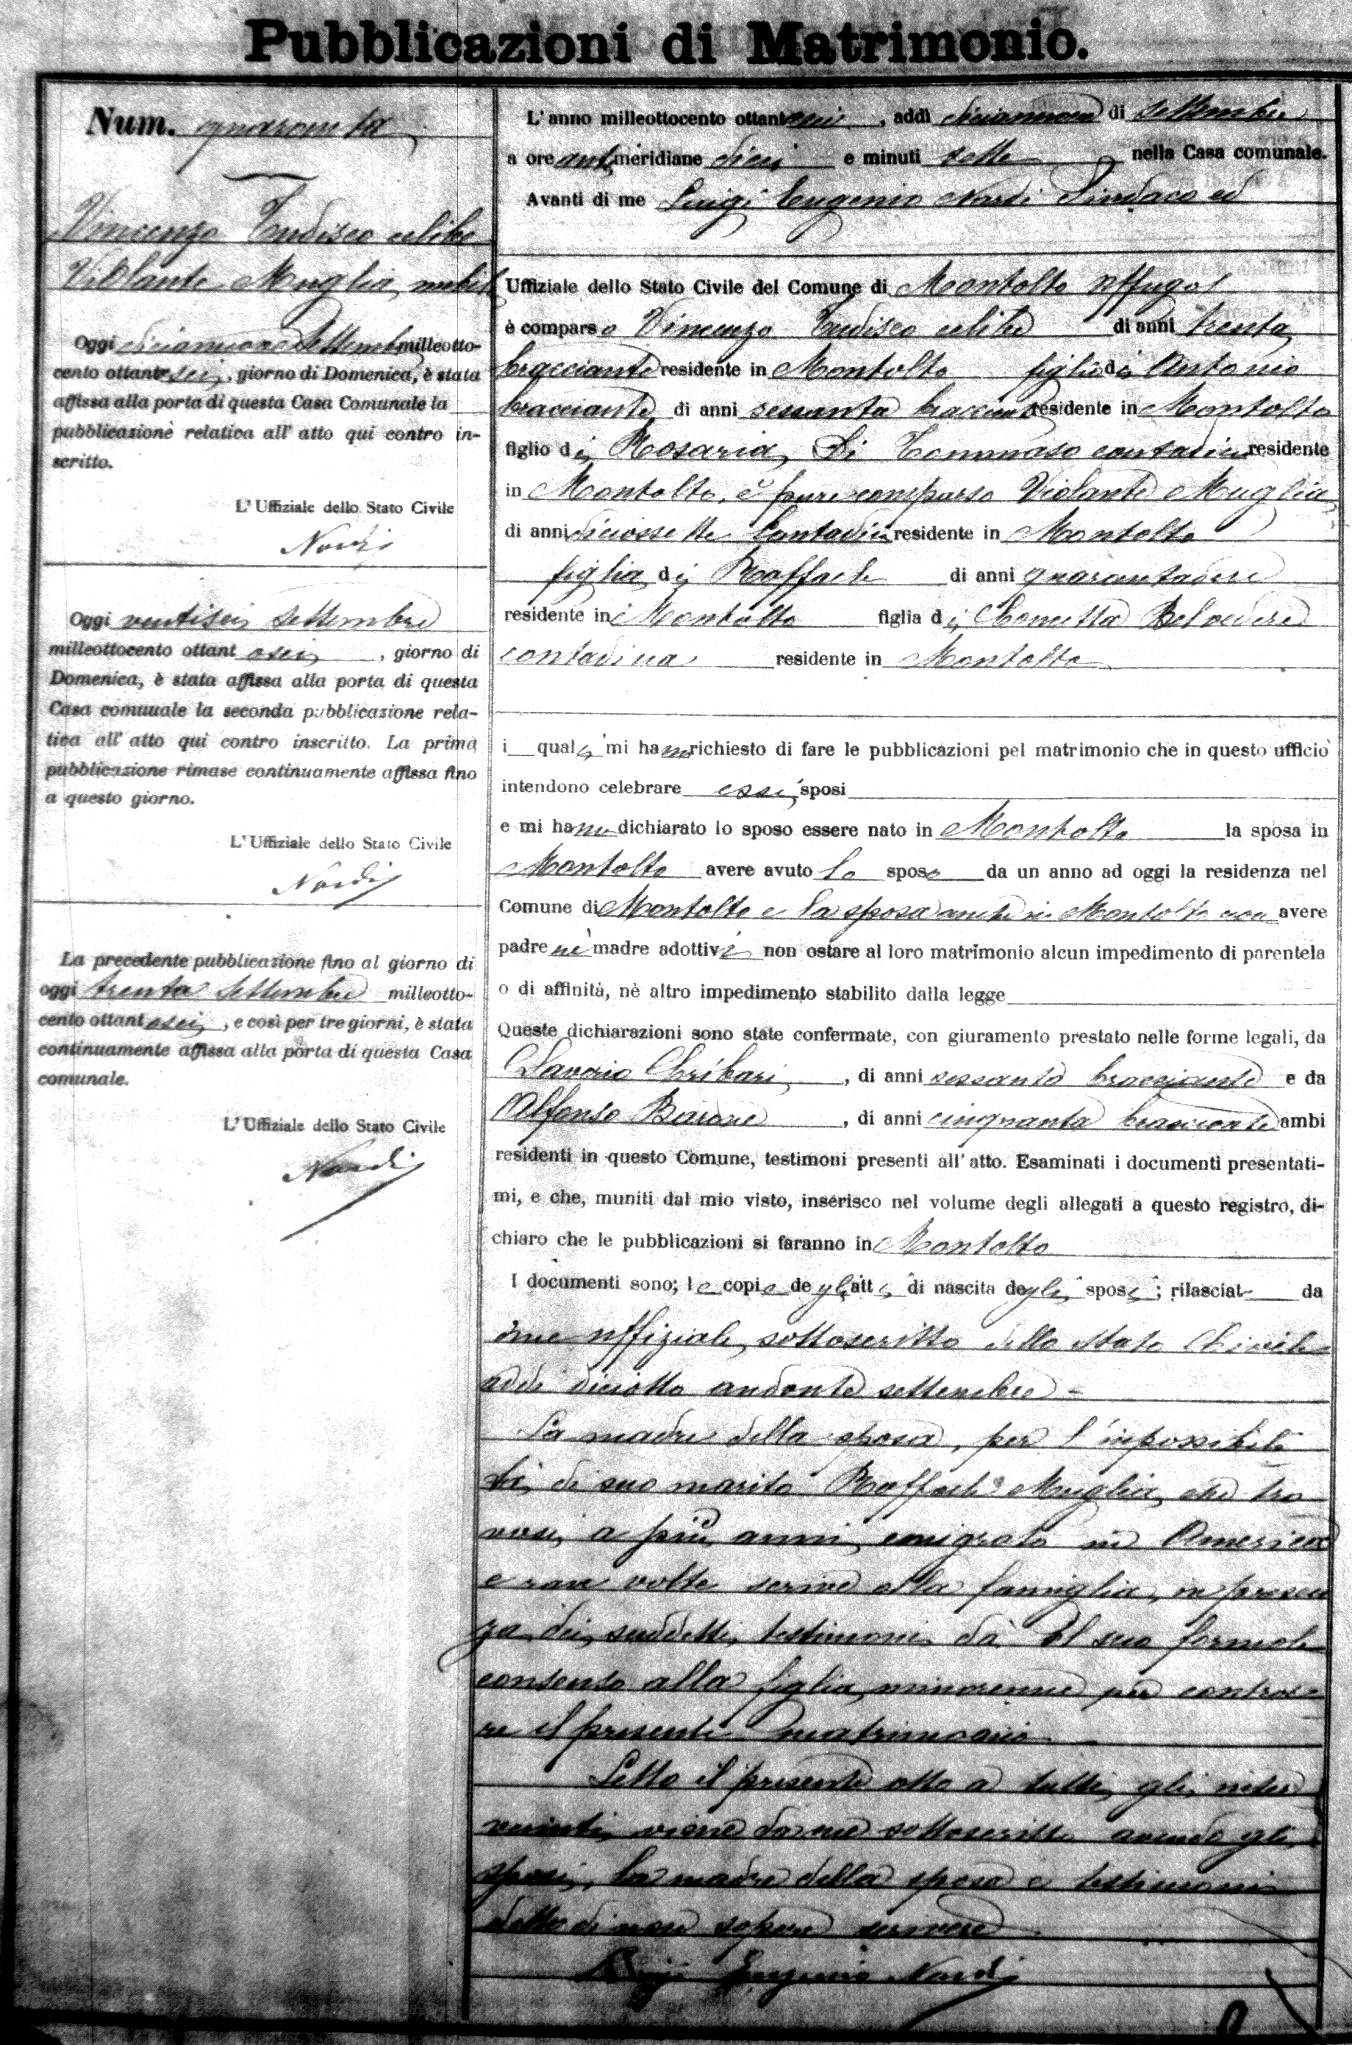 Pubblicazioni di Matrimonio.
Num. quaranta
Vincenzo Tudisco celibe
Violante Muglia nubile
Oggi diciannove Settembre milleotto-
cento ottantasei, giorno di Domenica, è stata
affissa alla porta di questa Casa Comunale la
pubblicazione relativa all' atto qui contro in-
scritto.
L' Uffiziale dello Stato Civile
Nardi
Oggi ventisei settembre
milleottocento ottantasei, giorno di
Domenica, è stata affissa alla porta di questa
Casa comunale la seconda pubblicazione rela-
tiva all' atto qui contro inscritto. La prima
pubblicazione rimase continuamente affissa fino
a questo giorno.
L' Uffiziale dello Stato Civile
Nardi
La precedente pubblicazione fino al giorno di
oggi trenta Settembre milleotto-
cento ottantasei, e così per tre giorni, è stata
continuamente affissa alla porta di questa Casa
comunale.
L' Uffiziale dello Stato Civile
Nardi
L' anno milleottocento ottantasei, addì diciannove di settembre
a ore antimeridiane dieci e minuti sette nella Casa comunale.
Avanti di me Luigi Eugenio Nardi Sindaco ed
Uffiziale dello Stato Civile del Comune di Montalto Uffugo
è comparso Vincenzo Tudisco celibe di anni trenta
bracciante residente in Montalto figlio di Antonio
bracciante di anni sessanta residente in Montalto
figlio di Rosaria Di Tommaso contadina residente
in Montalto, è pure comparsa Violante Muglia
di anni diciassette Contadina residente in Montalto
figlia di Raffaele di anni quarantadue
residente in Montalto figlia di Concetta Belvedere
contadina residente in Montalto
i quali mi hanno richiesto di fare le pubblicazioni pel matrimonio che in questo ufficio
intendono celebrare essi sposi
e mi hanno dichiarato lo sposo essere nato in Montalto la sposa in
Montalto avere avuto lo sposo da un anno ad oggi la residenza nel
Comune di Montalto e la sposa anche in Montalto non avere
padre nè madre adottivi non ostare al loro matrimonio alcun impedimento di parentela
o di affinità, nè altro impedimento stabilito dalla legge
Queste dichiarazioni sono state confermate, con giuramento prestato nelle forme legali, da
Saverio Chribari, di anni sessanta bracciante e da
Alfonso Barone, di anni cinquanta bracciante ambi
residenti in questo Comune, testimoni presenti all' atto. Esaminati i documenti presentati-
mi, e che, muniti dal mio visto, inserisco nel volume degli allegati a questo registro, di-
chiaro che le pubblicazioni si faranno in Montalto
I documenti sono; le copie degli atti di nascita degli sposi; rilasciat da
me uffiziale sottoscritto dello Stato Civile
addi diciotto andante settembre -
La madre della sposa, per l'impossibili
tà di suo marito Raffaele Muglia che tro
vasi a più anni emigrato in America
e rare volte scrive alla famiglia, in presen
za dei suddetti testimoni dà il suo formale
consenso alla figlia minorenne per contrar
re il presente matrimonio
Letto il presente atto a tutti gli inter
venuti viene da me sottoscritto avendo gli
sposi, la madre della sposa e testimoni
detto di non sapere scrivere
Luigi Eugenio Nardi